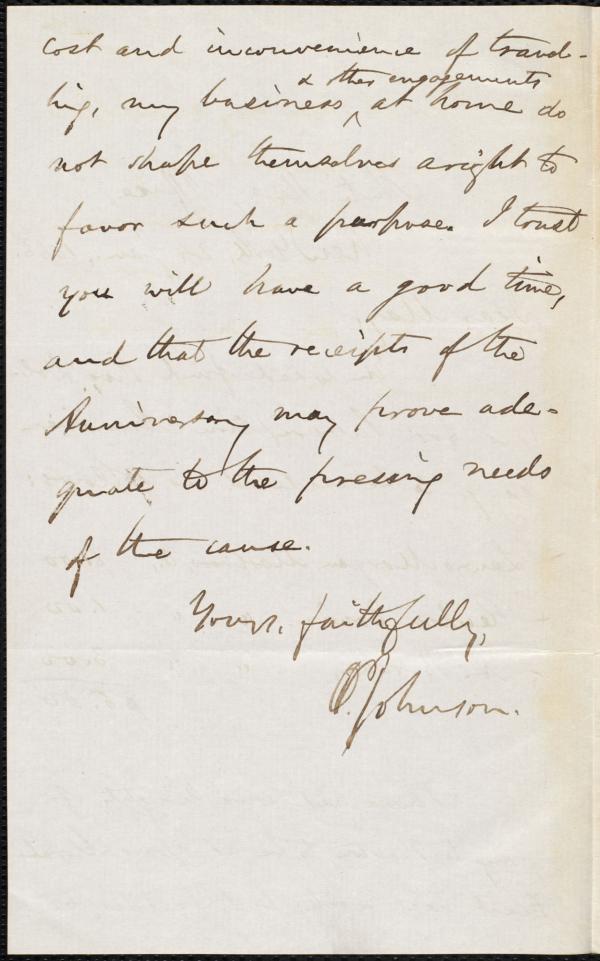 cost and inconvenience of travel-
ling, my business & other engagements at home do
not shape themselves aright to
favor such a purpose. I trust
you will have a good time,
and that the receipts of the
Anniversary may prove ade-
quate to the pressing needs
of the cause.
Yours, faithfully,
O. Johnson.